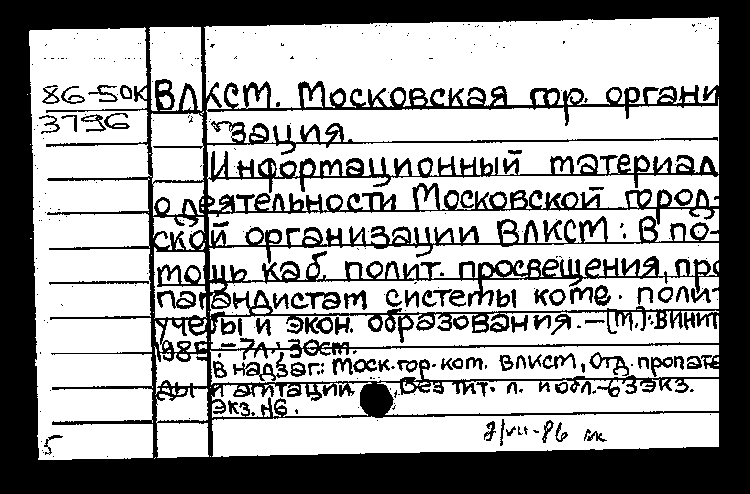 86-50К ВЛКСМ. Московская гор. органи
3796 зация.
Информационный материал
о деятельности Московской город-
ской организации ВЛКСМ: В по-
мощь каб. полит. просвещения, про
пагандистам системы комс. полит
учебы и экон. образования. – [М.]: ВИНИТ
1985. – 7л.; 30см.
В надзаг.: Моск. гор. ком. ВЛКСМ, Отд. пропага
ды и агитации. Без тит. л. и обл. – 63 экз.
Экз. №6.
5